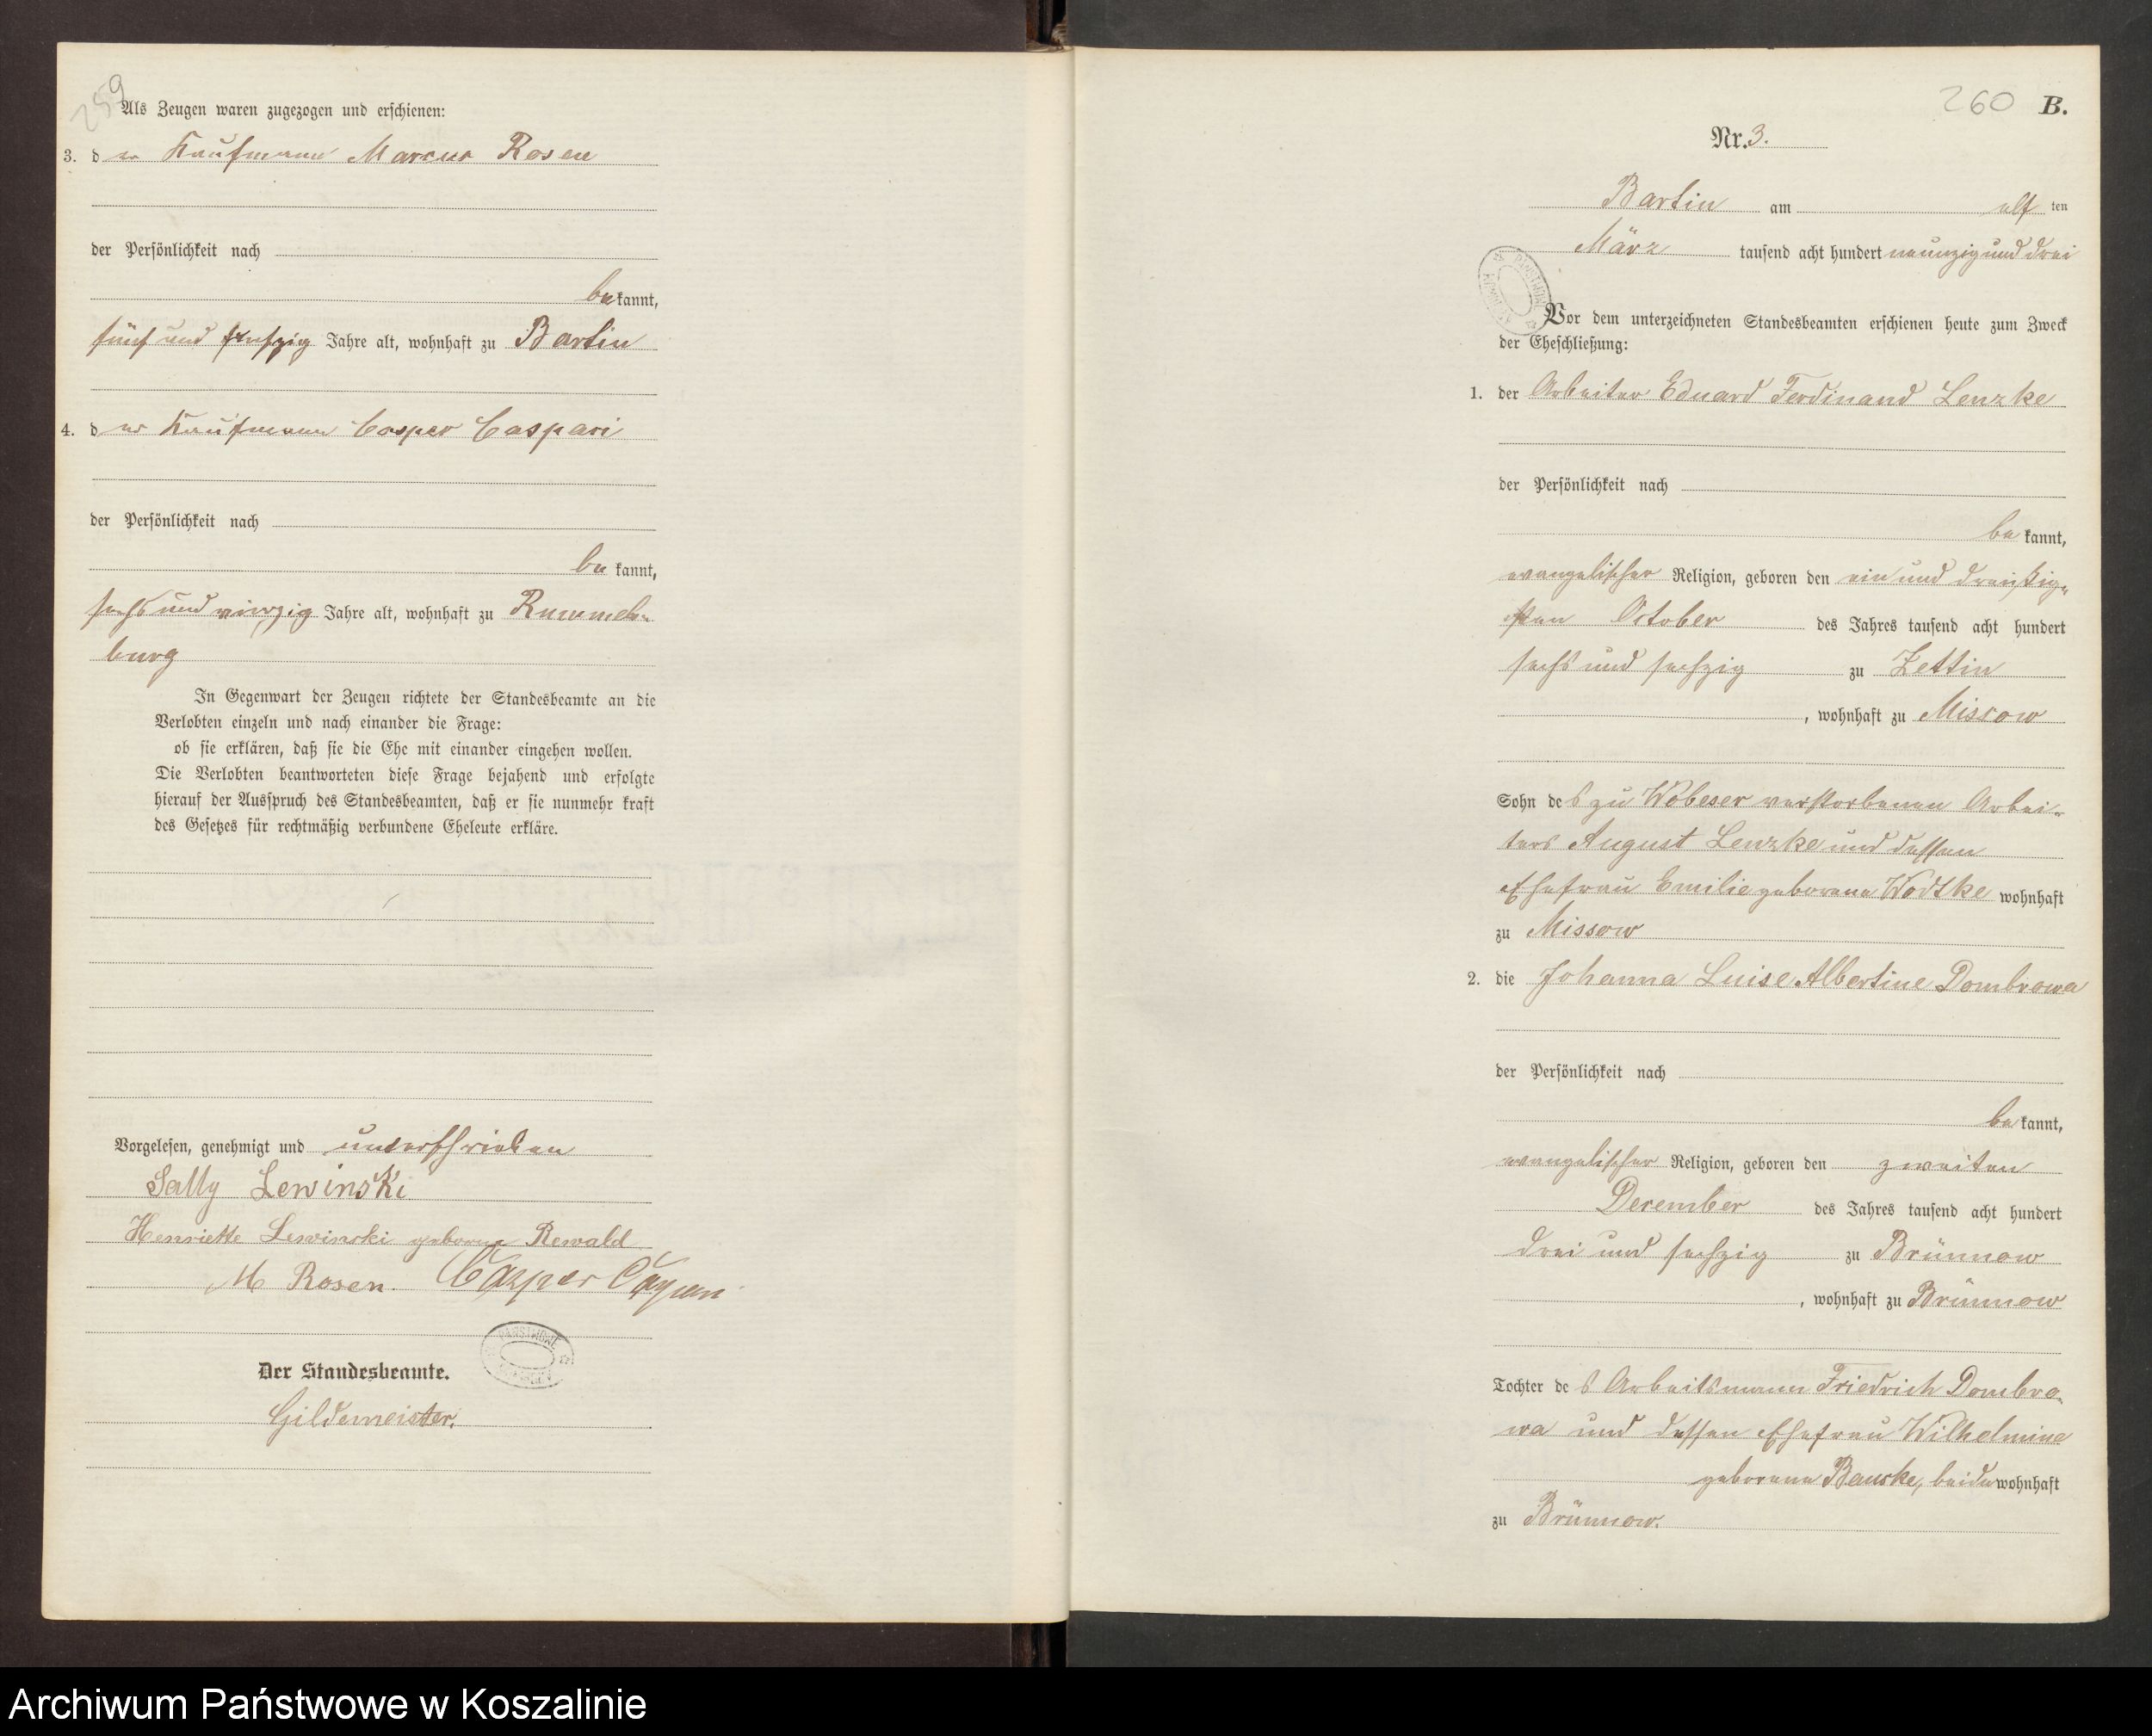 259
Als Zeugen waren zugezogen und erschienen:
3. der Kaufmann Marcus Rosen
der Persönlichkeit nach
bekannt,
fünf und fünfzig Jahre alt, wohnhaft zu Bartin
4. der Kaufmann Casper Caspari
der Persönlichkeit nach
bekannt,
sechs und vierzig Jahre alt, wohnhaft zu Rummels-
burg
In Gegenwart der Zeugen richtete der Standesbeamte an die
Verlobten einzeln und nach einander die Frage:
ob sie erklären, daß sie die Ehe mit einander eingehen wollen.
Die Verlobten beantworteten diese Frage bejahend und erfolgte
hierauf der Ausspruch des Standesbeamten, daß er sie nunmehr kraft
des Gesetzes für rechtmäßig verbundene Eheleute erkläre.
Vorgelesen, genehmigt und unterschrieben
Sally Lewinski
Henriette Lewinski geborene Rewald
M Rosen. Casper Caspari
Der Standesbeamte.
Gildemeister.
260 B.
Nr. 3.
Bartin am elften
März tausend acht hundert neunzig und drei
Vor dem unterzeichneten Standesbeamten erschienen heute zum Zweck
der Eheschließung:
1. der Arbeiter Eduard Ferdinand Lenzke
der Persönlichkeit nach
bekannt,
evangelischer Religion, geboren den ein und dreißig-
sten October des Jahres tausend acht hundert
sechs und sechzig zu Zettin
, wohnhaft zu Missow
Sohn des zu Wobeser verstorbenen Arbei-
ters August Lenzke und dessen
Ehefrau Emilie geborene Wodtke wohnhaft
zu Missow
2. die Johanna Luise Albertine Dombrowa
der Persönlichkeit nach
bekannt,
evangelischer Religion, geboren den zweiten
December des Jahres tausend acht hundert
drei und sechzig zu Brünnow
, wohnhaft zu Brünnow
Tochter des Arbeitsmann Friedrich Dombro-
wa und dessen Ehefrau Wilhelmine
geborene Bauske, beide wohnhaft
zu Brünnow.
Archiwum Państwowe w Koszalinie